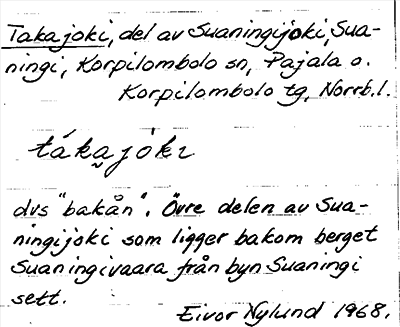 Takajoki, del av Suaningijoki, Sua-
ningi, Korpilombolo sn, Pajala o.
Korpilombolo tg, Norrb.l.
tákа̮jókɩ
dvs "bakån". Övre delen av Sua-
ningijoki som ligger bakom berget
Suaningivaara från byn Suaningi
sett.
Eivor Nylund 1968.